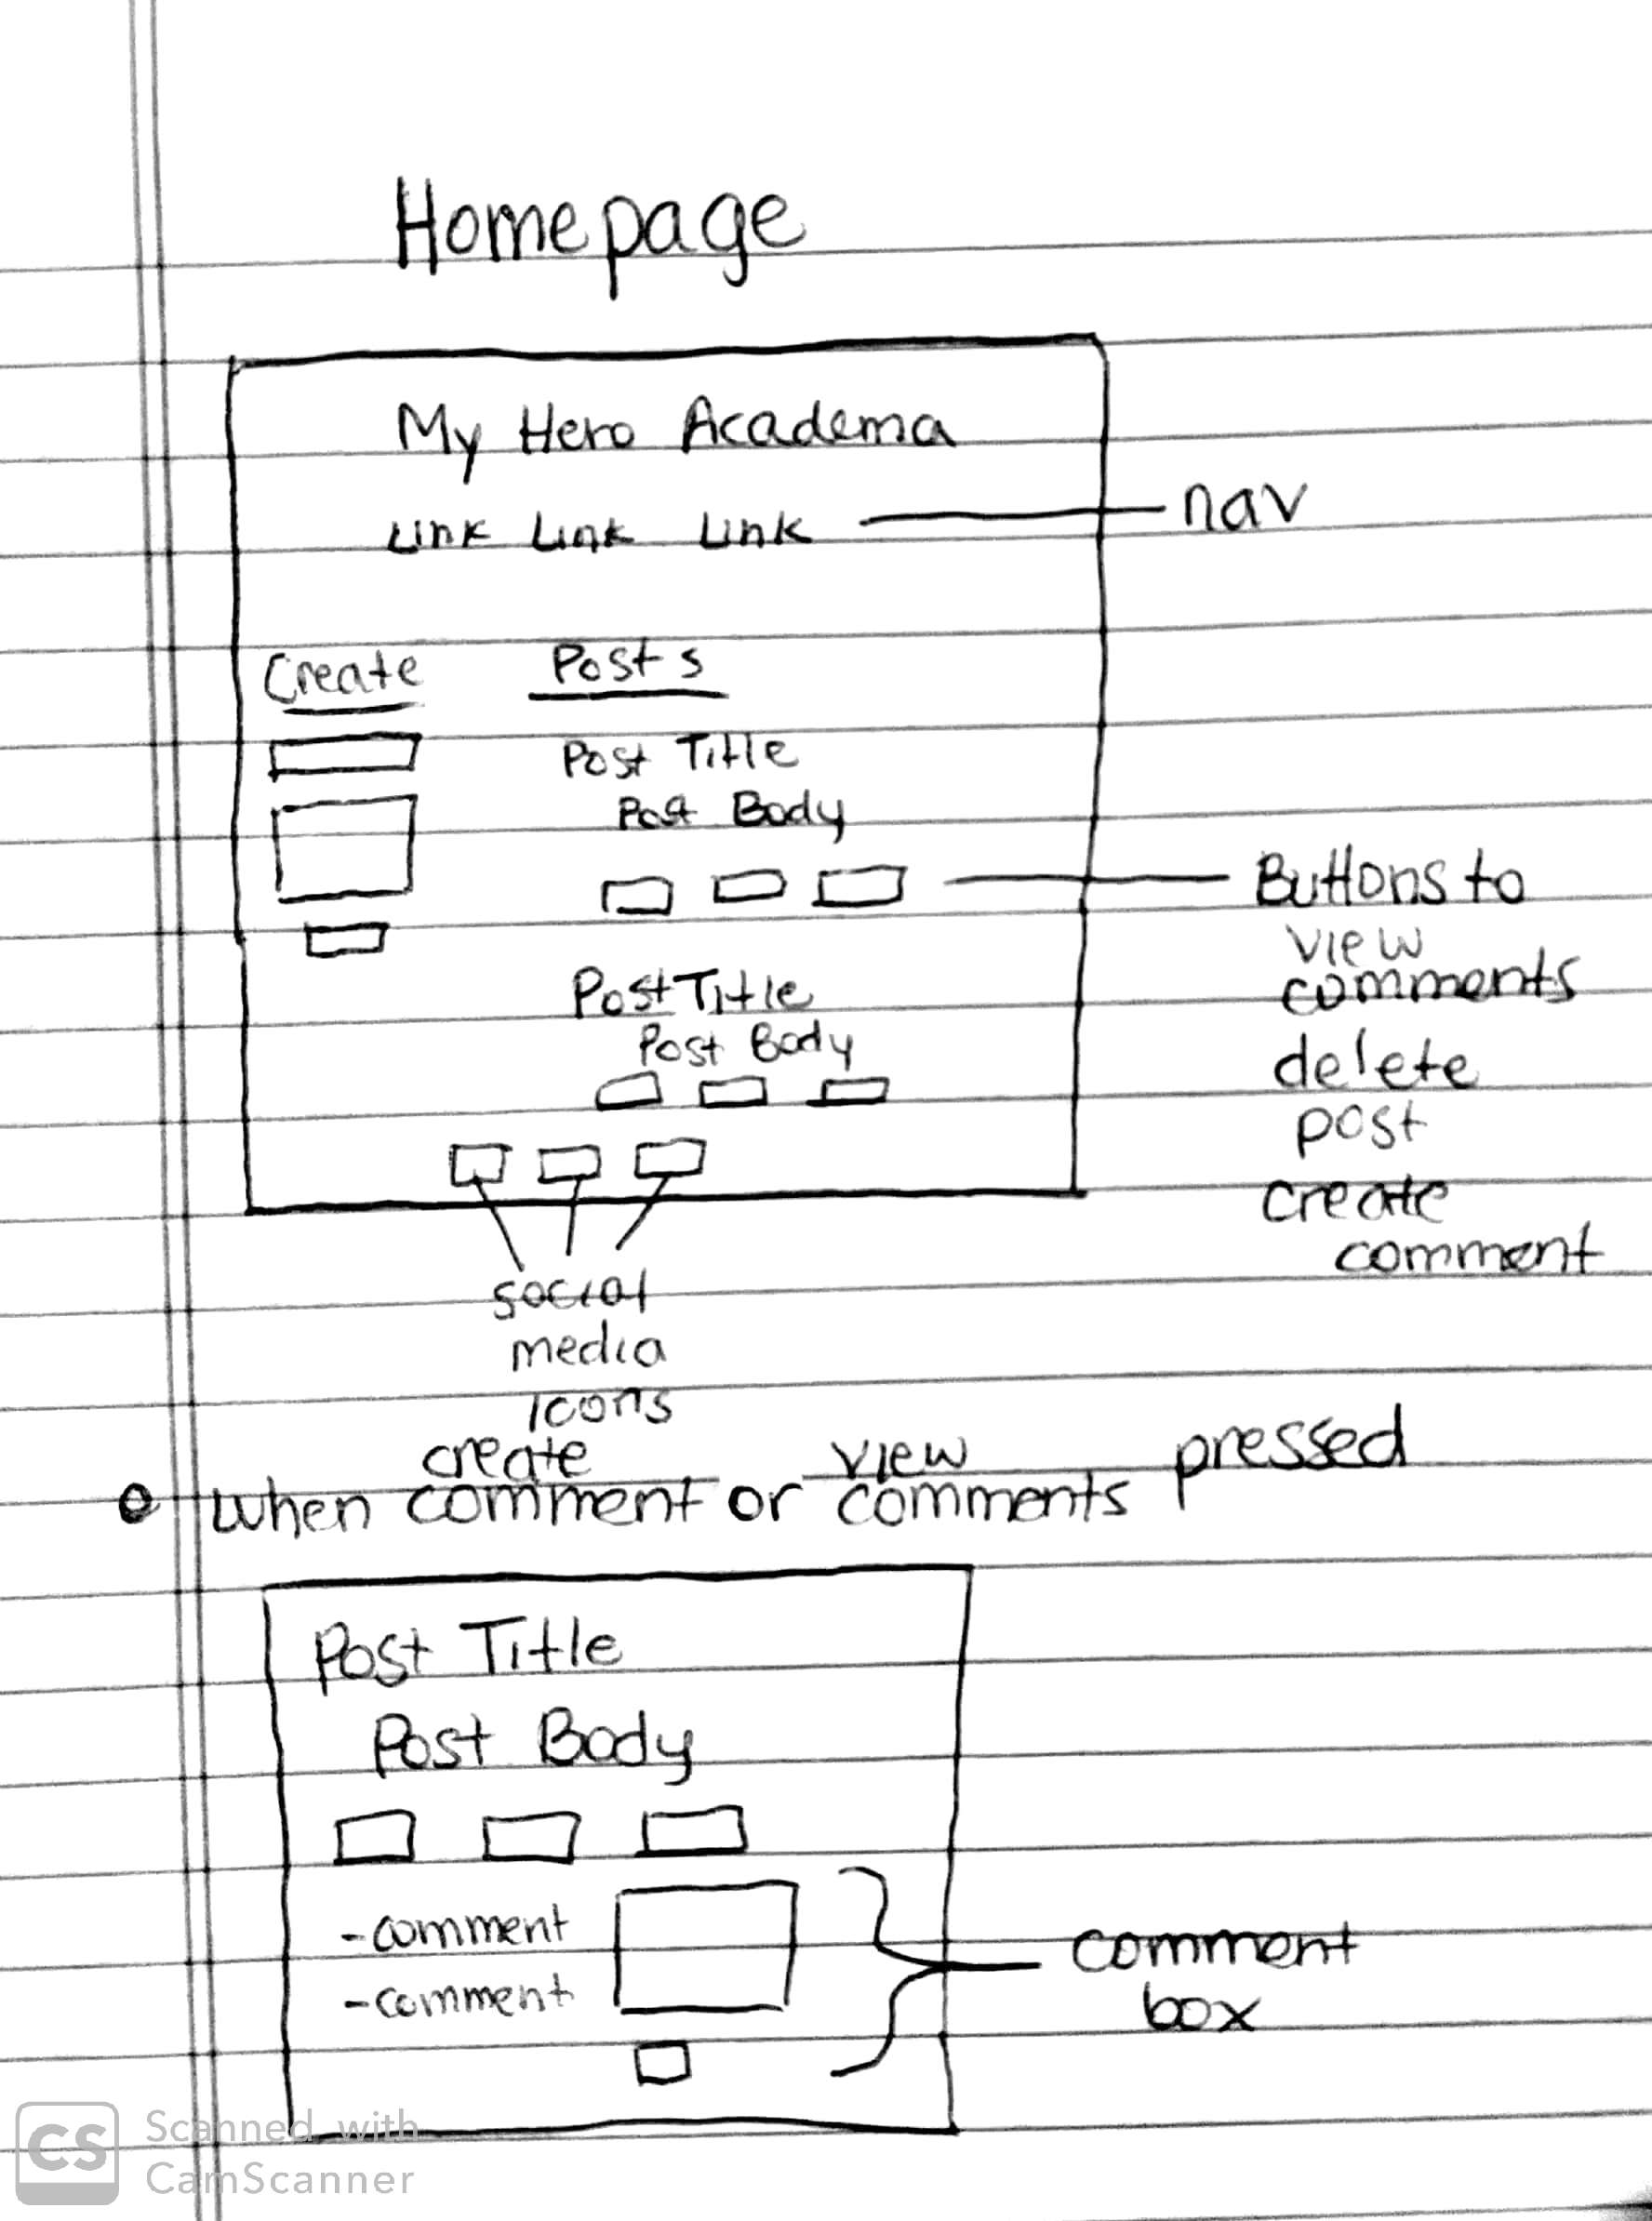 Homepage
My Hero Academa
Link Link Link
nav
Create
Posts
Post Title
Post Body
Buttons to
view
comments
delete
post
create
comment
Post Title
Post Body
social
media
icons
when create comment or view comments pressed
Post Title
Post Body
-comment
-comment
comment
box
CS
Scanned with
CamScanner